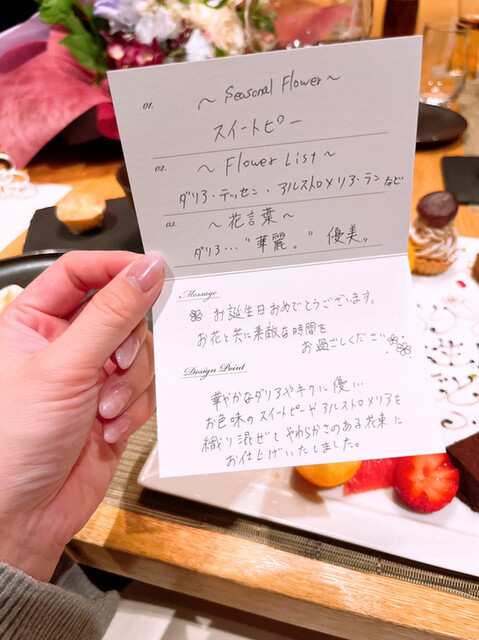 01.
～ Seasonal Flower ～
スイートピー
02.
～ Flower List ～
ダリア・テッセン・アルストロメリア・ランなど
03.
～ 花言葉 ～
ダリア… "華麗。" 優美〃
Message
お誕生日おめでとうございます。
お花と共に素敵な時間を
お過ごしください
Design Point
華やかなダリアやキクに優しい
お色味のスイートピーやアルストロメリアを
織り混ぜて やわらかさのある花束に
お仕上げいたしました。